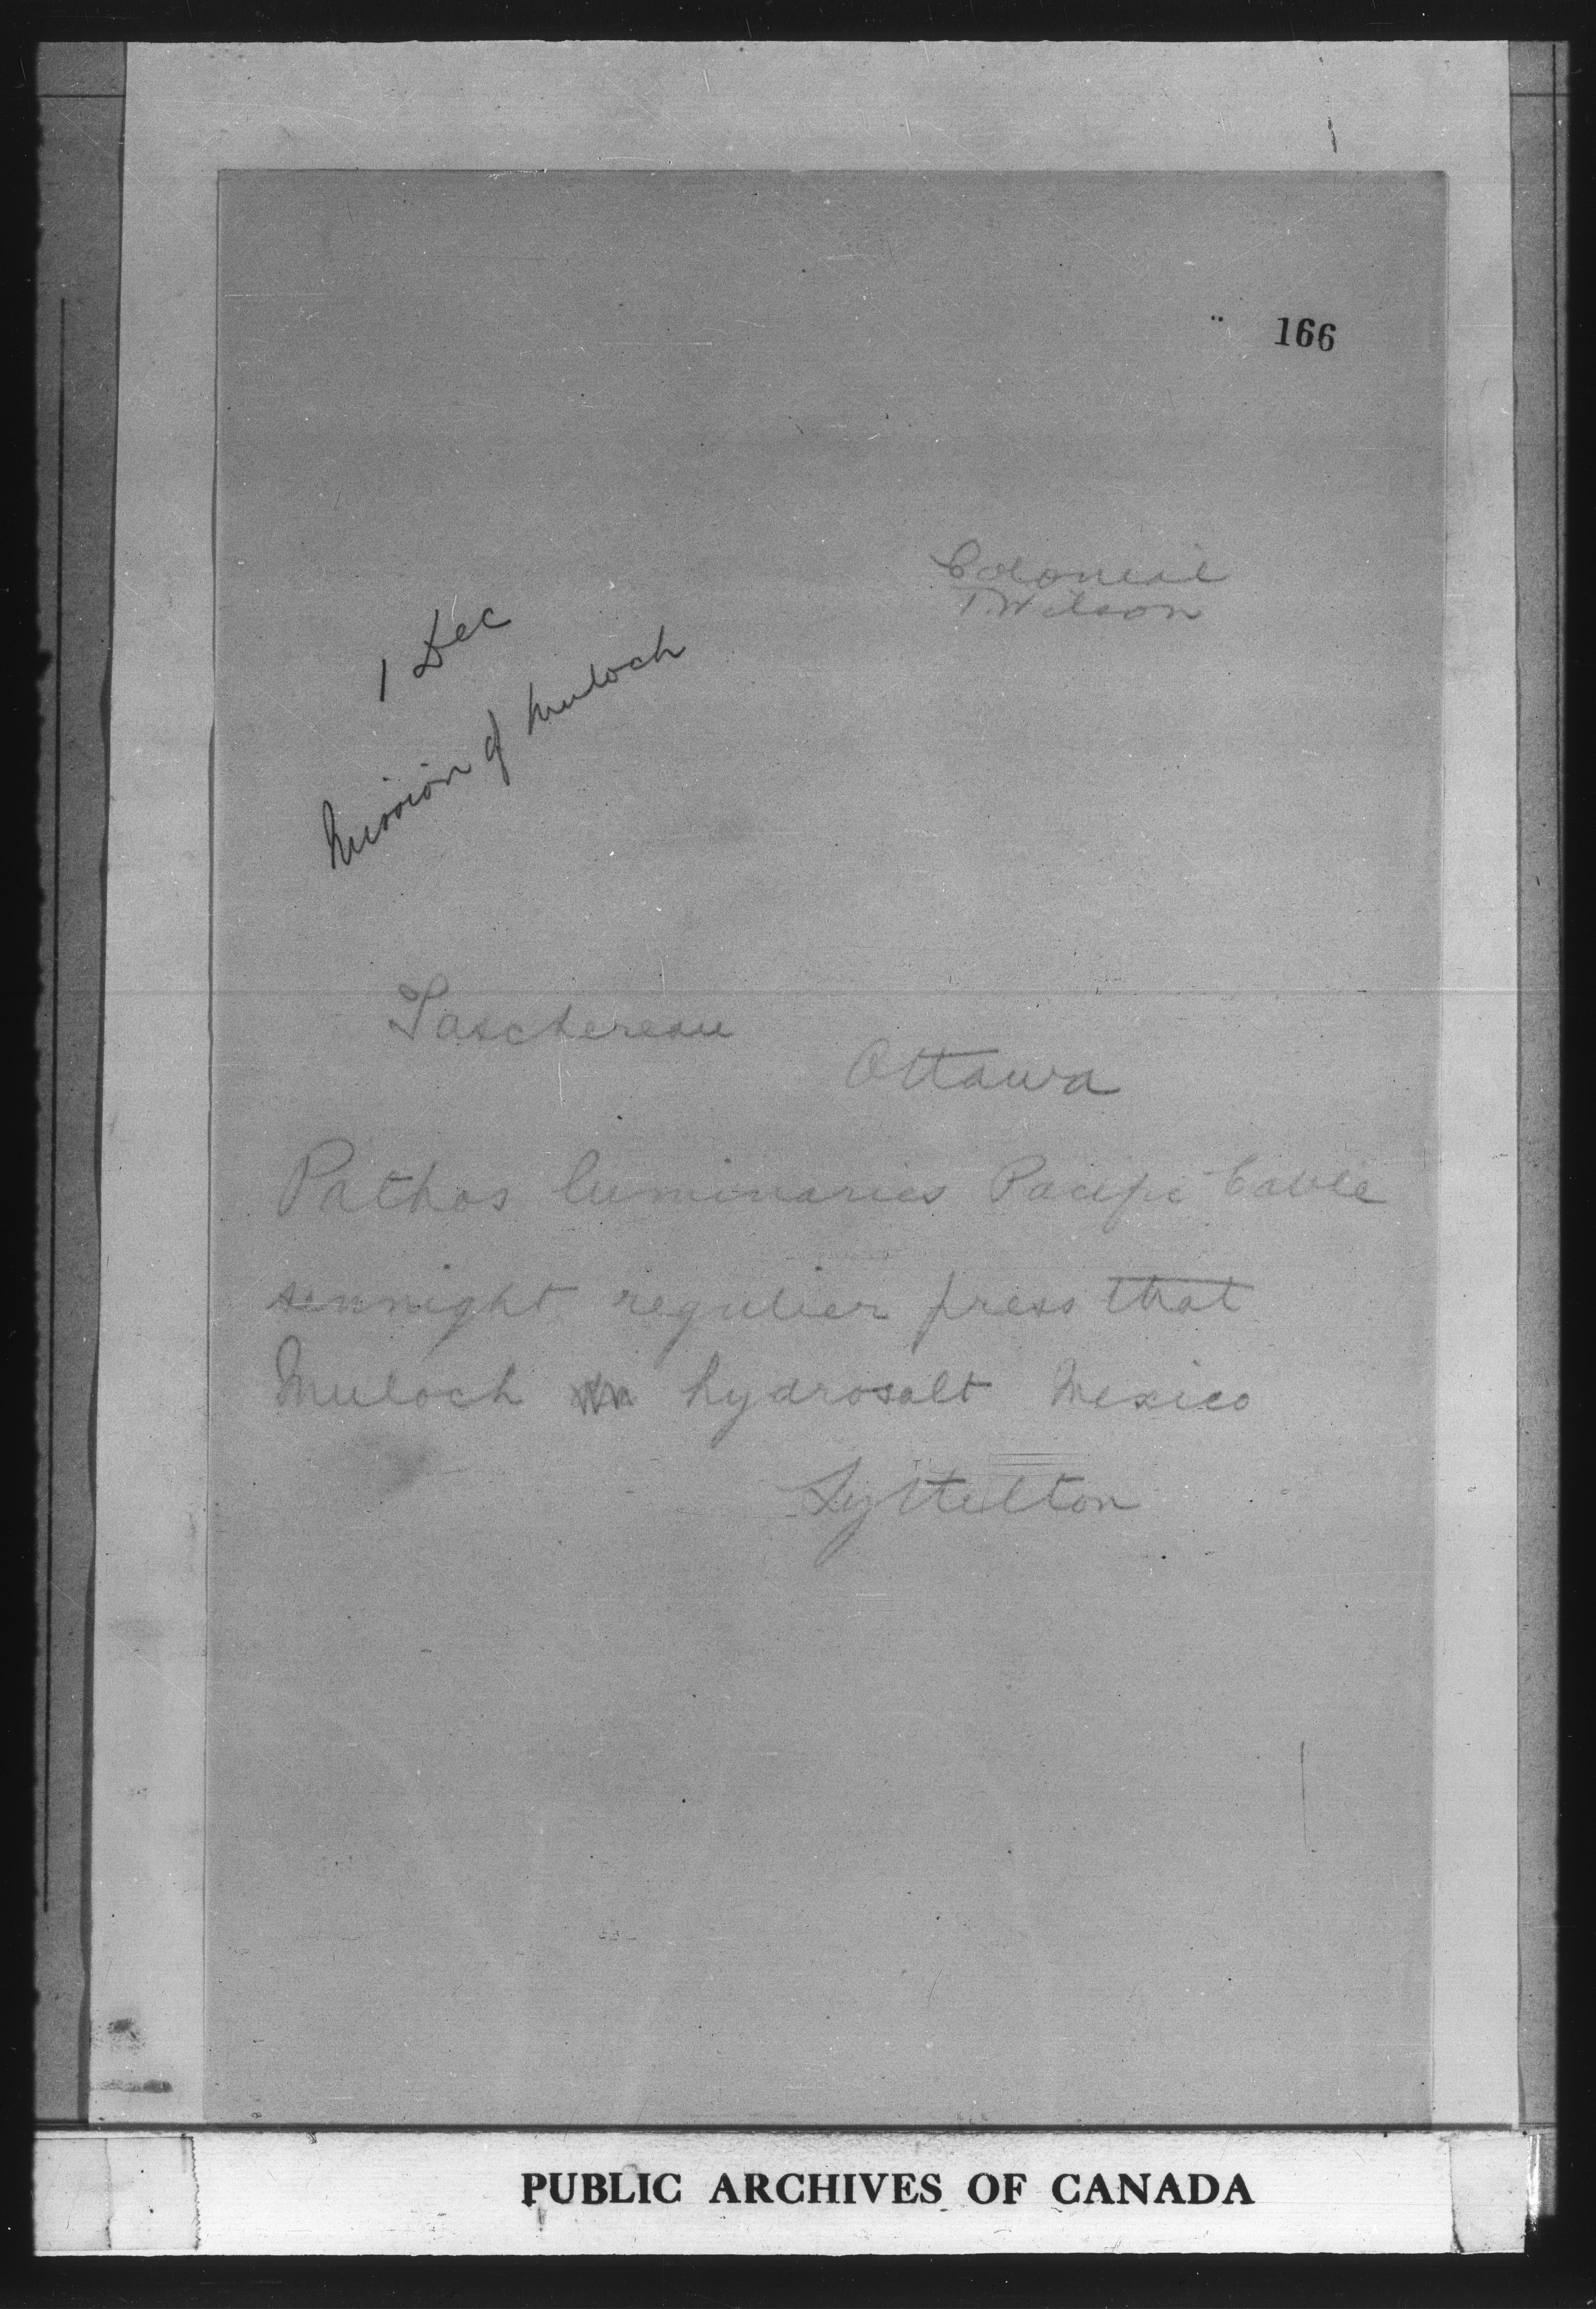 166
Colonial
T. Wilson
1 Dec
Mission of Muloch
Taschereau
Ottawa
Pathos luminaries Pacific Cable
sennight regulier press that
Muloch hydrosalt Mexico
Lyttelton
PUBLIC ARCHIVES OF CANADA